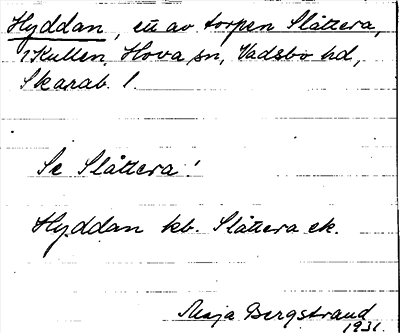 Hyddan, ett av torpen Slåttera,
1 Kullen, Hova sn, Vadsbo hd,
Skarab. l.
Se Slåttera!
Hyddan kb. Slåttera ek.
Maja Bergstrand
1931.